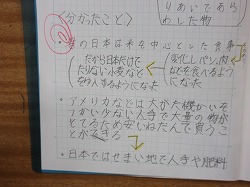 りあいであら
わした物
〈分かったこと〉
・昔の日本は米を中心とした食事
だから日本だけで
たりない小麦など
をゆ入するようになった
変化しパン、肉
などを食べるように
なった
・アメリカなどは大がた機かいを
つかい少ない人手で大量の物が
とてるため安いねだんで買うこ
とができる
・日本ではせまい地で人手や肥料